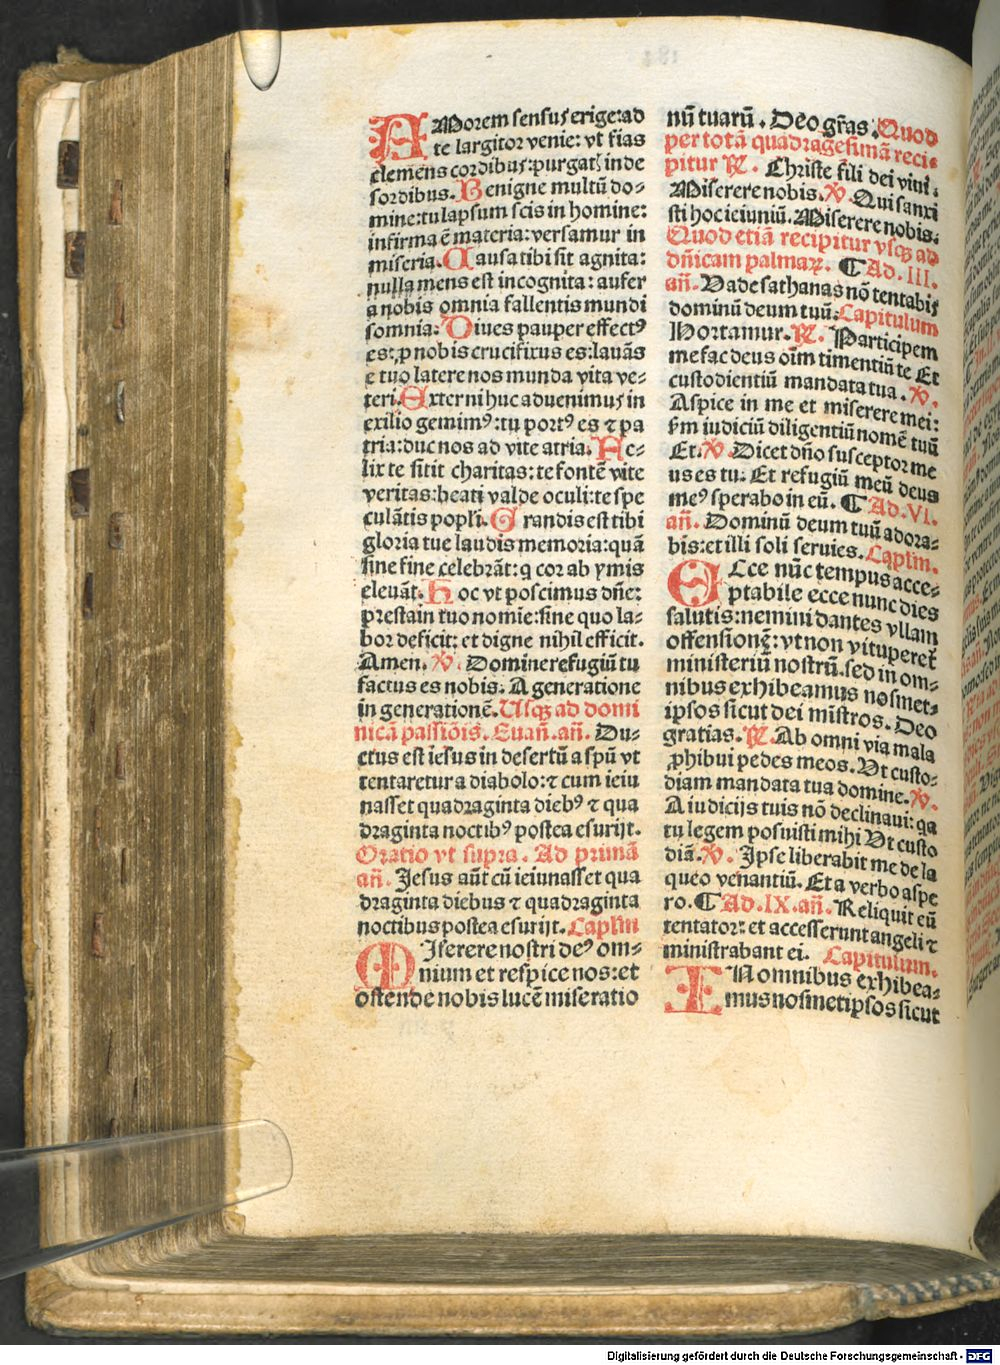 AMorem sensus erige: ad
te largitor venie: vt fias
clemens cordibus: purgatis inde
sordibus. Benigne multū do-
mine: tu lapsum scis in homine:
infirma ē materia: versamur in
miseria. Causa tibi sit agnita:
nulla mens est incognita: aufer
a nobis omnia fallentis mundi
somnia: Diues pauper effectꝰ
es: ꝓ nobis crucifixus es: lauās
e tuo latere nos munda vita ve-
teri. Externi huc aduenimus in
exilio gemimꝰ: tu portꝰ es ⁊ pa
tria: duc nos ad vite atria. Fe-
lix te sitit charitas: te fontē vite
veritas: beati valde oculi: te spe
culātis popłi. Grandis est tibi
gloria tue laudis memoria: quā
sine fine celebrāt: q cor ab ymis
eleuāt. Hoc vt poscimus dn̄e:
presta in tuo nomīe: sine quo la-
bor deficit: et digne nihil efficit.
Amen. ℣. Domine refugiū tu
factus es nobis. A generatione
in generationē. Usqꝫ ad domi
nicā passiōis. Euan̄. an̄. Du-
ctus est iesus in desertū a spū vt
tentaretur a diabolo: ⁊ cum ieiu
nasset quadraginta diebꝰ ⁊ qua
draginta noctibꝰ postea esurijt.
Oratio vt supra. Ad primā
an̄. Jesus aūt cū ieiunasset qua
draginta diebus ⁊ quadraginta
noctibus postea esurijt. Caplm̄
MIserere nostri deꝰ om-
nium et respice nos: et
ostende nobis lucē miseratio
nū tuarū. Deo gr̄as. Quod
per totā quadragesimā reci-
pitur ℟. Christe fili dei viui.
Miserere nobis. ℣. Qui sanxi
sti hoc ieiuniū. Miserere nobis.
Quod etiā recipitur vsqꝫ ad
dn̄icam palmaꝝ. ¶ Ad. III.
an̄. Vade sathanas nō tentabis
dominū deum tuū. Capitulum
Hortamur. ℟. Participem
me fac deus oīm timentiū te Et
custodientiū mandata tua. ℣.
Aspice in me et miserere mei:
s̄m iudiciū diligentiū nomē tuū
Et. ℣. Dicet dn̄o susceptor me
us es tu. Et refugiū meū deus
meꝰ sperabo in eū. ¶ Ad. VI.
an̄. Dominū deum tuū adora-
bis: et illi soli seruies. Caplm̄.
ECce nūc tempus acce-
ptabile ecce nunc dies
salutis: nemini dantes vllam
offensionē: vt non vituperet̄
ministeriū nostrū. sed in om-
nibus exhibeamus nosmet-
ipsos sicut dei mīstros. Deo
gratias. ℟. Ab omni via mala
ꝓhibui pedes meos. Vt custo-
diam mandata tua domine. ℣.
A iudicijs tuis nō declinaui: qa
tu legem posuisti mihi Vt custo
diā. ℣. Ipse liberabit me de la
queo venantiū. Et a verbo aspe
ro. ¶ Ad. IX. an̄. Reliquit eū
tentator: et accesserunt angeli ⁊
ministrabant ei. Capitulum.
IN omnibus exhibea-
mus nosmetip̄sos sicut
Digitalisierung gefördert durch die Deutsche Forschungsgemeinschaft - DFG